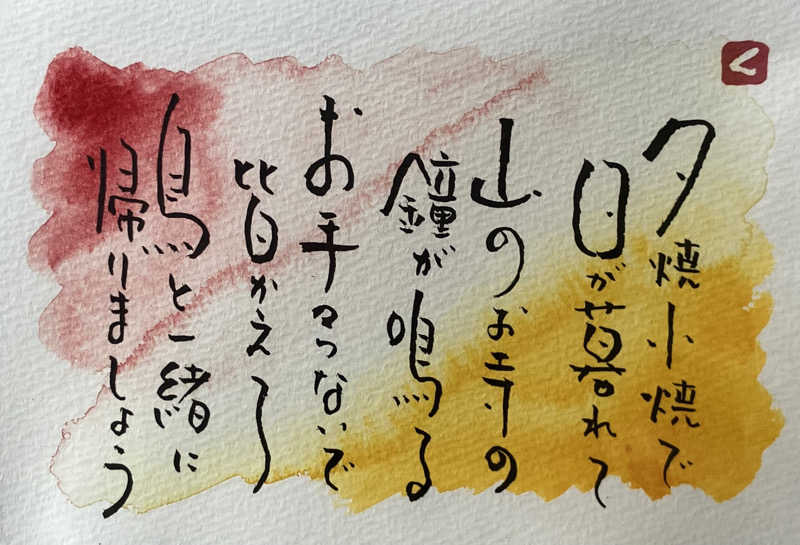 く
夕焼小焼で
日が暮れて
山のお寺の
鐘が鳴る
お手々つないで
皆かえろ
烏と一緒に
帰りましょう